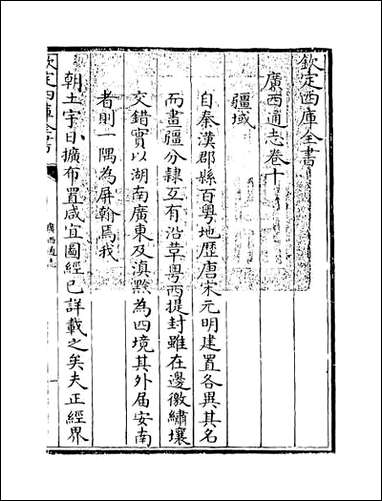 欽定四庫全書
廣西通志卷十
疆域
自秦漢郡縣百粤地歴唐宋元明建置各異其名
而畫疆分隸互有沿革粤西提封雖在邊徼繡壤
交錯實以湖南廣東及滇黔為四境其外屆安南
者則一隅為屏翰焉我
朝土宇日擴布置咸宜圖經已詳載之矣夫正經界
欽定四庫全書
廣西通志